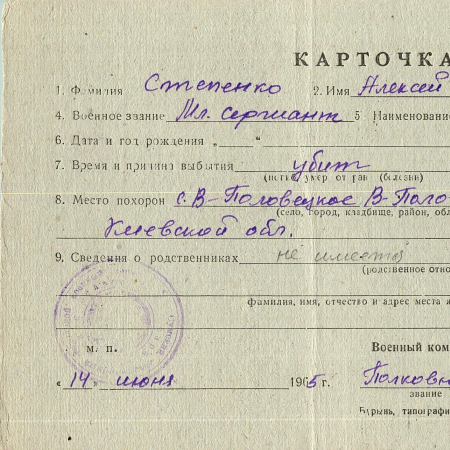 КАРТОЧКА
1. Фамилия Степенко 2. Имя Алексей
4. Военное звание Мл. сержант 5 Наименование
6. Дата и год рождения „ “
7. Время и причина выбытия убит
(убит, умер от ран (болезни)
8. Место похорон с. В-Половецкое В-Поло
(село, город, кладбище, район, обл
Киевской обл.
9. Сведения о родственниках не имеется
(родственное отно
фамилия, имя, отчество и адрес места ж
м. п. Военный ком
„14" июня 1965 г. Полковн
звание
Бурынь, типографи